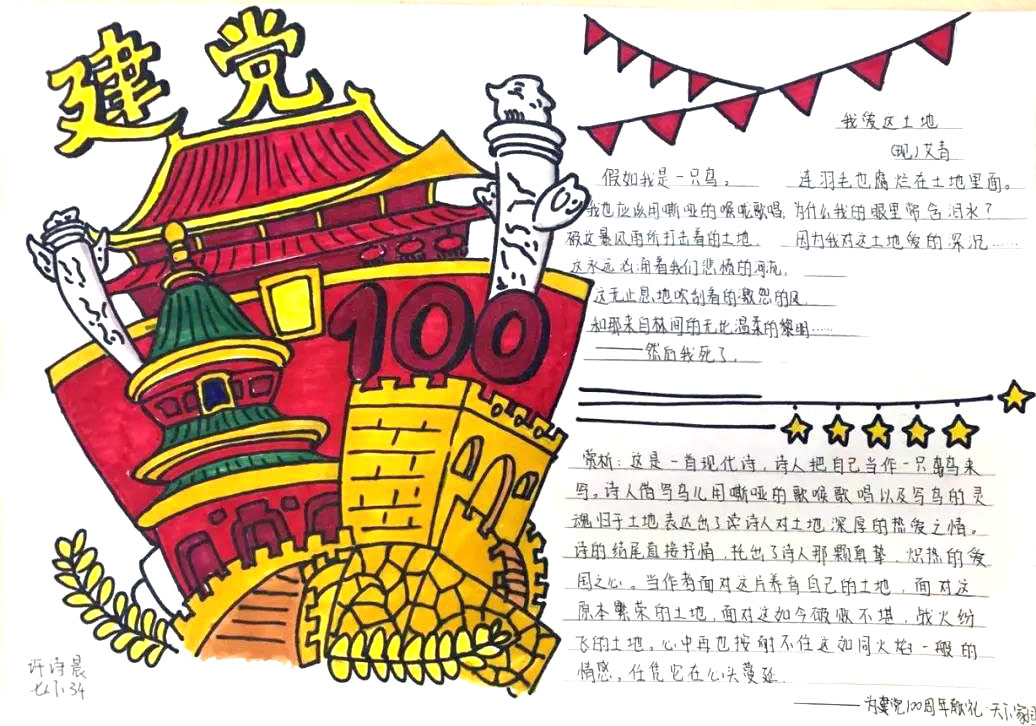 建党
100
我爱这土地
(现)艾青
假如我是一只鸟，
我也应该用嘶哑的喉咙歌唱
被这暴风雨所打击着的土地，
这永远汹涌着我们悲愤的河流，
这无止息地吹刮着的激怒的风，
和那来自林间的无比温柔的黎明……
——然后我死了，
连羽毛也腐烂在土地里面。
为什么我的眼里常含泪水？
因为我对这土地爱的深沉……
赏析：这是一首现代诗，诗人把自己当作一只鸟来
写。诗人借写鸟儿用嘶哑的歌喉歌唱以及写鸟的灵
魂归于土地表达出了诗人对土地深厚的热爱之情。
诗的结尾直接抒情，托出了诗人那颗真挚、炽热的爱
国之心。当作者面对这片养育自己的土地，面对这
原本繁荣的土地，面对这如今破败不堪，战火纷
飞的土地，心中再也按耐不住这如同火焰一般的
情感，任凭它在心头蔓延
——为建党100周年献礼·天下家国
许诗晨
七(1)34